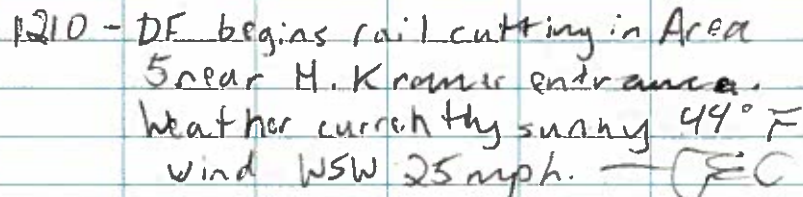 1210 - DF begins rail cutting in Area
5 near H. Kramer entrance.
Weather currently sunny 44° F
wind WSW 25 mph. —